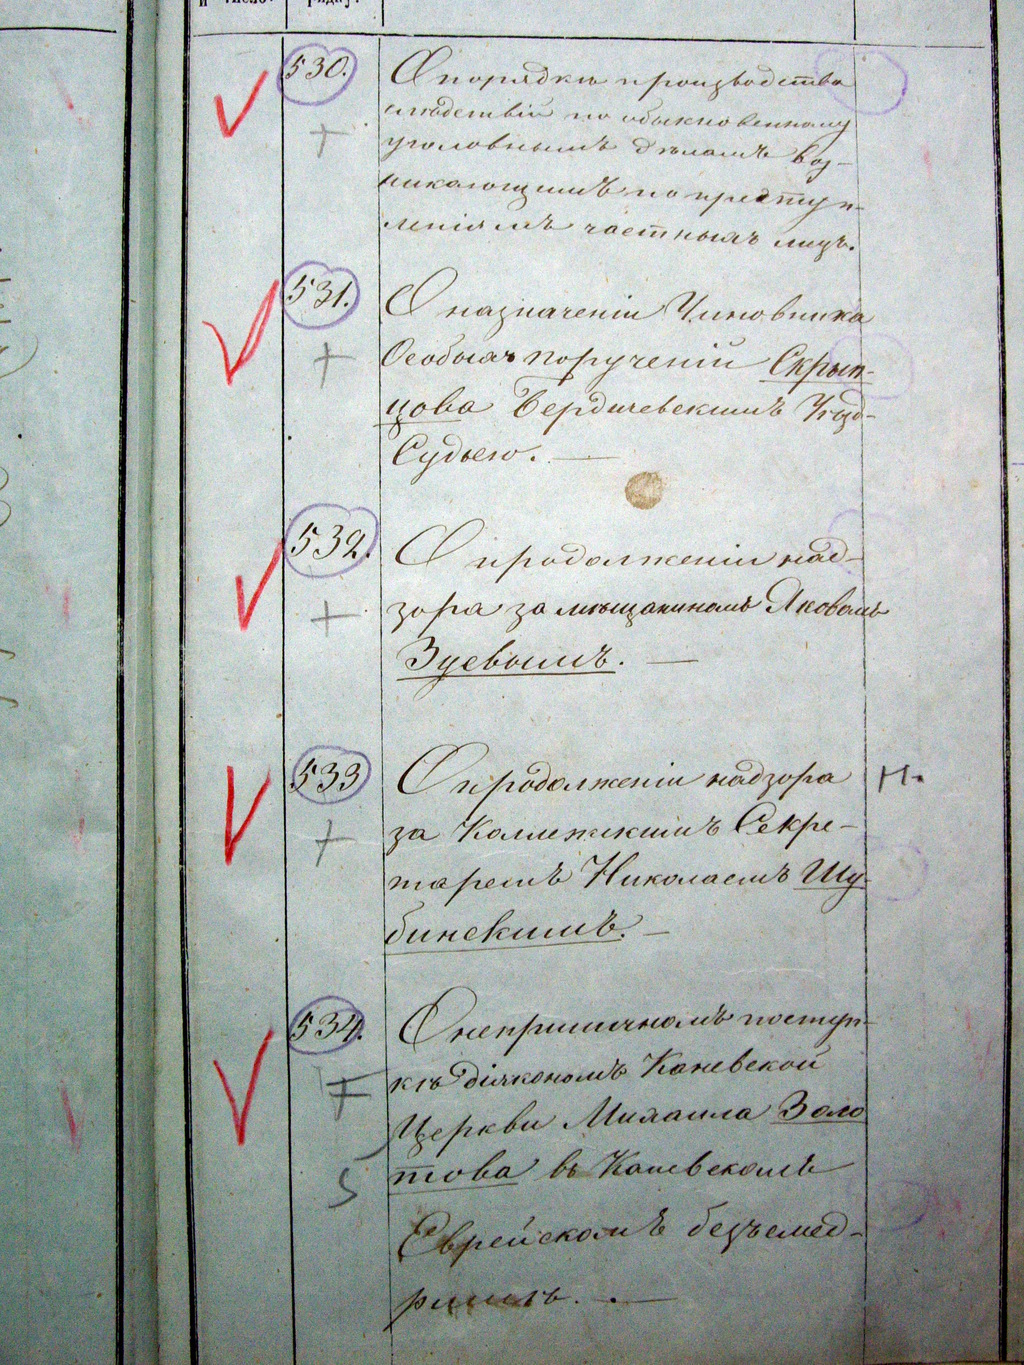 и число.
рядку.
530.
О порядкѣ производства
слѣдствій по обыкновенному
уголовнымъ дѣламъ воз-
никающимъ по преступ-
леніямъ частныхъ лицъ.
531.
О назначеніи Чиновника
Особыхъ порученій Скрып-
цова Бердичевскимъ Уѣзд-
Судьею. —
532.
О продолженіи над-
зора за мѣщаниномъ Яковомъ
Зуевымъ. —
533
О продолженіи надзора
за Коллежскимъ Секре-
таремъ Николаемъ Шу-
бинскимъ. —
Н.
534.
О неприличномъ поступ-
кѣ діякономъ Каневской
Церкви Михаила Золо
това въ Каневскомъ
Еврейскомъ
5